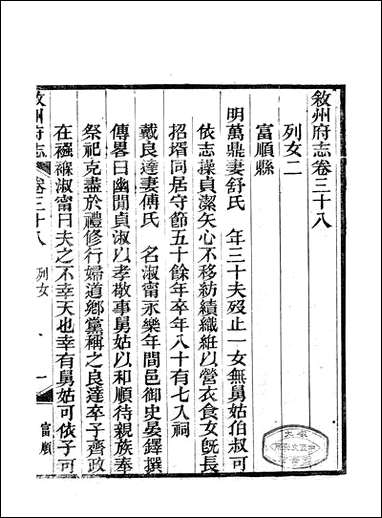 敘州府志卷三十八
列女二
富順縣
明萬鼎妻舒氏 年三十夫歿止一女無舅姑伯叔可
依志操貞潔矢心不移紡績織絍以營衣食女旣長
招壻同居守節五十餘年卒年八十有七入祠
戴良達妻傅氏 名淑甯永樂年間邑御史晏鐸撰
傳畧曰幽閒貞淑以孝敬事舅姑以和順待親族奉
祭祀克盡於禮修行婦道鄉黨稱之良達卒子齊政
在襁緥淑甯曰夫之不幸天也幸有舅姑可依子可
敘州府志 卷三十八 列女 一 富順